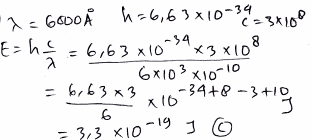 λ = 6000 Å h = 6,63 × 10^-34 c = 3 × 10^8
E = h c/λ = (6,63 × 10^-34 × 3 × 10^8) / (6 × 10^3 × 10^-10)
= (6,63 × 3) / 6 × 10^-34+8-3+10 J
= 3,3 × 10^-19 J Ⓒ